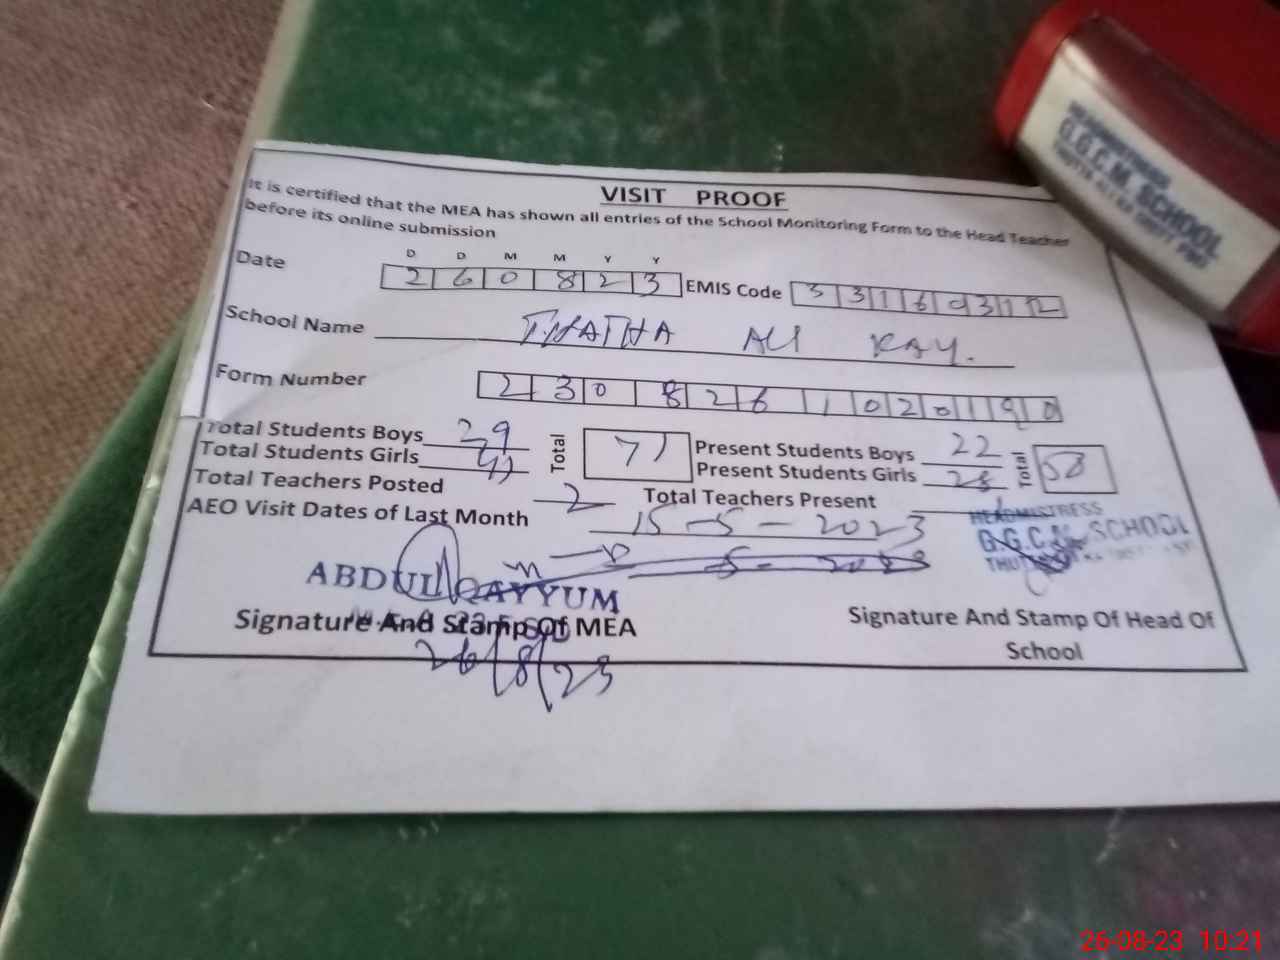 G.G.C.M. SCHOOL
VISIT PROOF
It is certified that the MEA has shown all entries of the School Monitoring Form to the Head Teacher
before its online submission
D D M M Y Y
Date 2 6 0 8 2 3 EMIS Code 3 3 1 6 0 3 1 2
School Name THATHA ALI KAY.
Form Number 2 3 0 8 2 6 1 0 2 0 1 9 0
Total Students Boys 29 Total 71 Present Students Boys 22 Total 50
Total Students Girls Present Students Girls 28
Total Teachers Posted 2 Total Teachers Present
AEO Visit Dates of Last Month 15-5-2023
HEADMISTRESS
G.G.C.M. SCHOOL
5-2023
ABDUL QAYYUM
Signature And Stamp Of MEA
Signature And Stamp Of Head Of
School
26/8/23
26-08-23 10:21